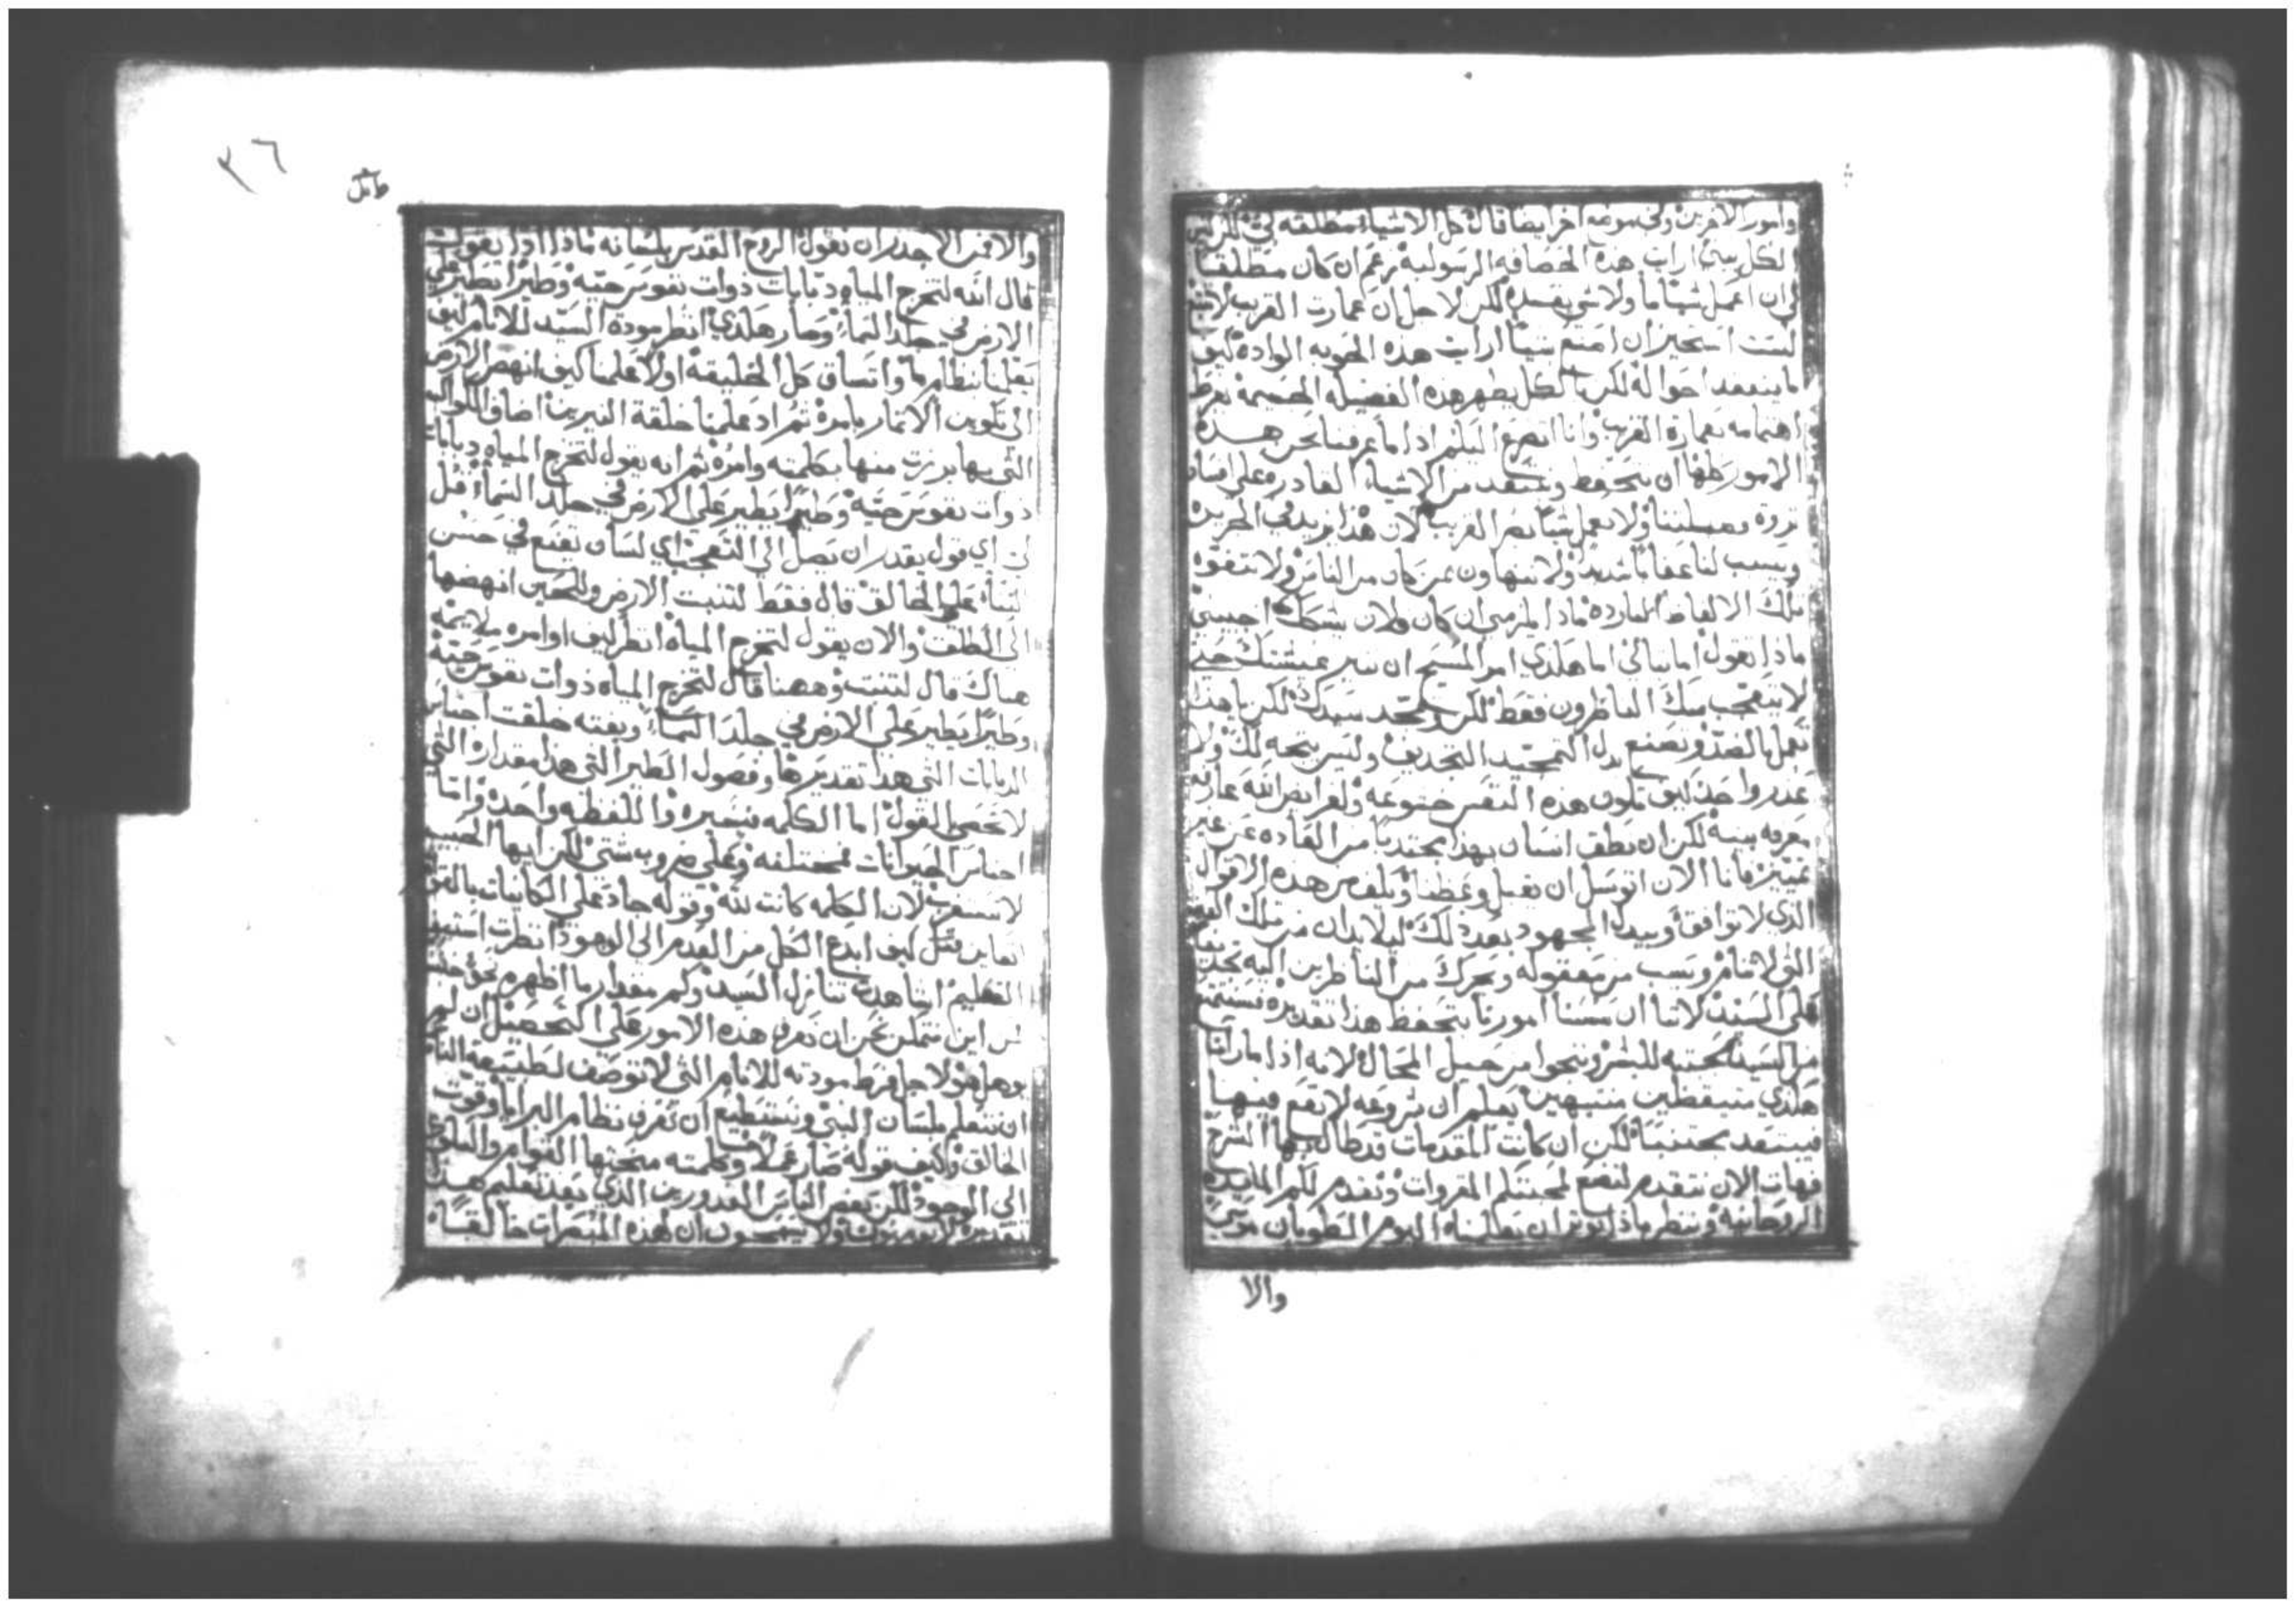 وامور الاخرين وفي موضع اخر ايضا قال كل الاشياء مطلقه لي لكن ليس
الكل يبني ارايت هذه الحصافه الرسوليه زعم ان كان مطلقا
لي ان اعمل شيئا ما ولا شي يفسده لكن لاجل ان عمارت القريب لا تتبع
لست استخير ان اصنع شيئا ارايت هذه الحنويه الواده كيف
ما يتفقد احواله لكن بالكل يظهر هذه الفضيله الجسيمة بفرط
اهتمامه بعمارة القريب وانا اتضرع اليكم اذا ما عرفنا نحن هذه
الامور كلها ان نتحفظ ونبتعد من الاشياء القادره على افساد
ثروة فضيلتنا ولا نعمل شيئا يضر القريب لان هذا يزيد في الجريره
ويسبب لنا عقابا شديدا ولا نتهاون بمن كان من الناس ولا نتفوه
تلك الالفاظ البارده ماذا يلزمني ان كان فلان يتشكك اجيبني
ماذا تقول اما تبالي اما هكذي امر المسيح ان تنير عيشتك حتى
لا يتعجب منك الناظرون فقط لكن ويمجد سيدك لكن يا هذا
تعمل بالضد وتصنع بدل التمجيد التجديف وليس يتجه لك ولا
عذر واحد كيف تكون هذه النفس خشوعه ولفرايض الله عارفه
معرفه بينه لكن ان نطق انسان بهذا مجتذبا من العاده عن غير
تمييز فانا الان اتوسل ان يقبل وعظنا ويكف من هذه الاقوال
الذي لا توافق ويبذل المجهود بعد ذلك ليلا يدان من تلك العين
التي لا تنام ويسب من معقوله ويحرك من الناظرين اليه تجديفا
على السيد لاننا ان سسنا امورنا بتحفظ هذا تقديره نستمتع
من السيد لمحبته للبشر وننجوا من حبيل المحال لانه اذا ما راانا
هكذي متيقظين منتبهين يعلم ان شروعه لا يقع فينا
فيبتعد مجتنبا لكن ان كانت المقدمات قد طال بها الشرح
فهات الان نتقدم لنضع لمحبتكم المقروات ونقدم لكم المايده
الروحانيه وننظر ماذا يوثر ان يعلمنا اليوم الطوبان موسى
والا
٢٦
والافمن الاجدر ان نقول الروح القدس بلسانه ماذا اذا يقول
قال الله لتخرج المياه دبابات ذوات نفوس حيه وطيرا تطير على
الارض في جلد السماء وصار هكذي انظر مودة السيد للانام كيف
يعلمنا نظام ما واتساق كل الخليقة اولا علمنا كيف انهض الارض
الى تكوين الاثمار بامره ثم اد علمنا خلقة النيرين اضاف الكواكب
التي بها برزت منها بكلمته وامره ثم انه يقول لتخرج المياه دبابات
ذوات نفوس حيه وطيرا يطير على الارض في جلد السماء قل
لي اي قول يقدر ان يصل الى التعجب اي لسان تقنع في حسن
الثناء على الخالق قال فقط لتنبت الارض وللحين انهضها
الى الطلق والان يقول لتخرج المياه انظر كيف اوامره ملايمه
هناك قال لتنبت وههنا قال لتخرج المياه ذوات نفوس حيه
وطيرا يطير على الارض في جلد السماء وبغته خلقت اجناس
الدبابات التي هذا تقديرها وفصول الطير التي هذا مقداره التي
لا تحصى القول اما الكلمه فيسيره واللفظه واحده واما
اجناس الحيوانات فمختلفه وعلى ضروب شتى لكن ايها الحبيب
لا تستغرب لان الكلمه كانت لله وقوله جاد على الكاينات بالقوام
العظيم اشاهدت تنازل السيد وكم مقدار ما اظهره نحو جنسنا
لس اين نتمكن نحن ان نعرف هذه الامور على التحصيل ان لم
يوهل هو لاجل فرط مودته للانام التي لا توصف لطبيعة الناس
ان نتعلم بلسان النبي ونستطيع ان نعرف نظام البرايا وقوت
الخالق وكيف قوله صار عملا وكلمته منحتها القوام والبلوغ
الى الوجود لكن بعض الناس المغدورين الذي بعد تعليم هذا
تقديره لا يومنون ولا يسمحون ان لهذه المبصرات خالقا